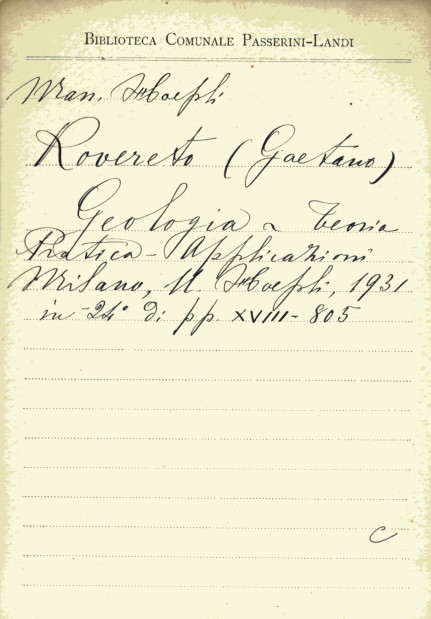 BIBLIOTECA COMUNALE PASSERINI-LANDI
Man. Hoepli
Rovereto (Gaetano)
Geologia ~ Teoria
Pratica - Applicazioni
Milano, U. Hoepli, 1931
in 24° di pp. XVIII-805
C